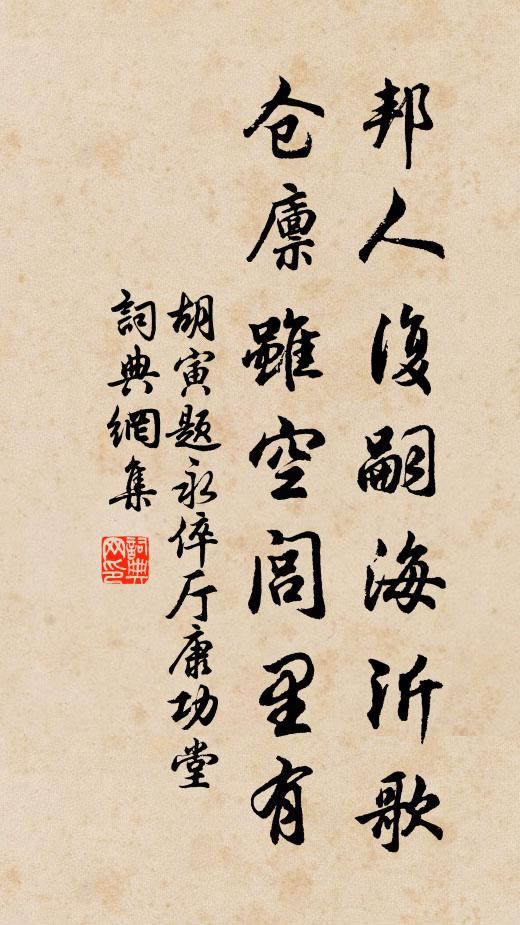 邦人復嗣海沂歌
仓廪雖空闾里有
胡寅题永倅厅康功堂
詞典網集
詞典网印